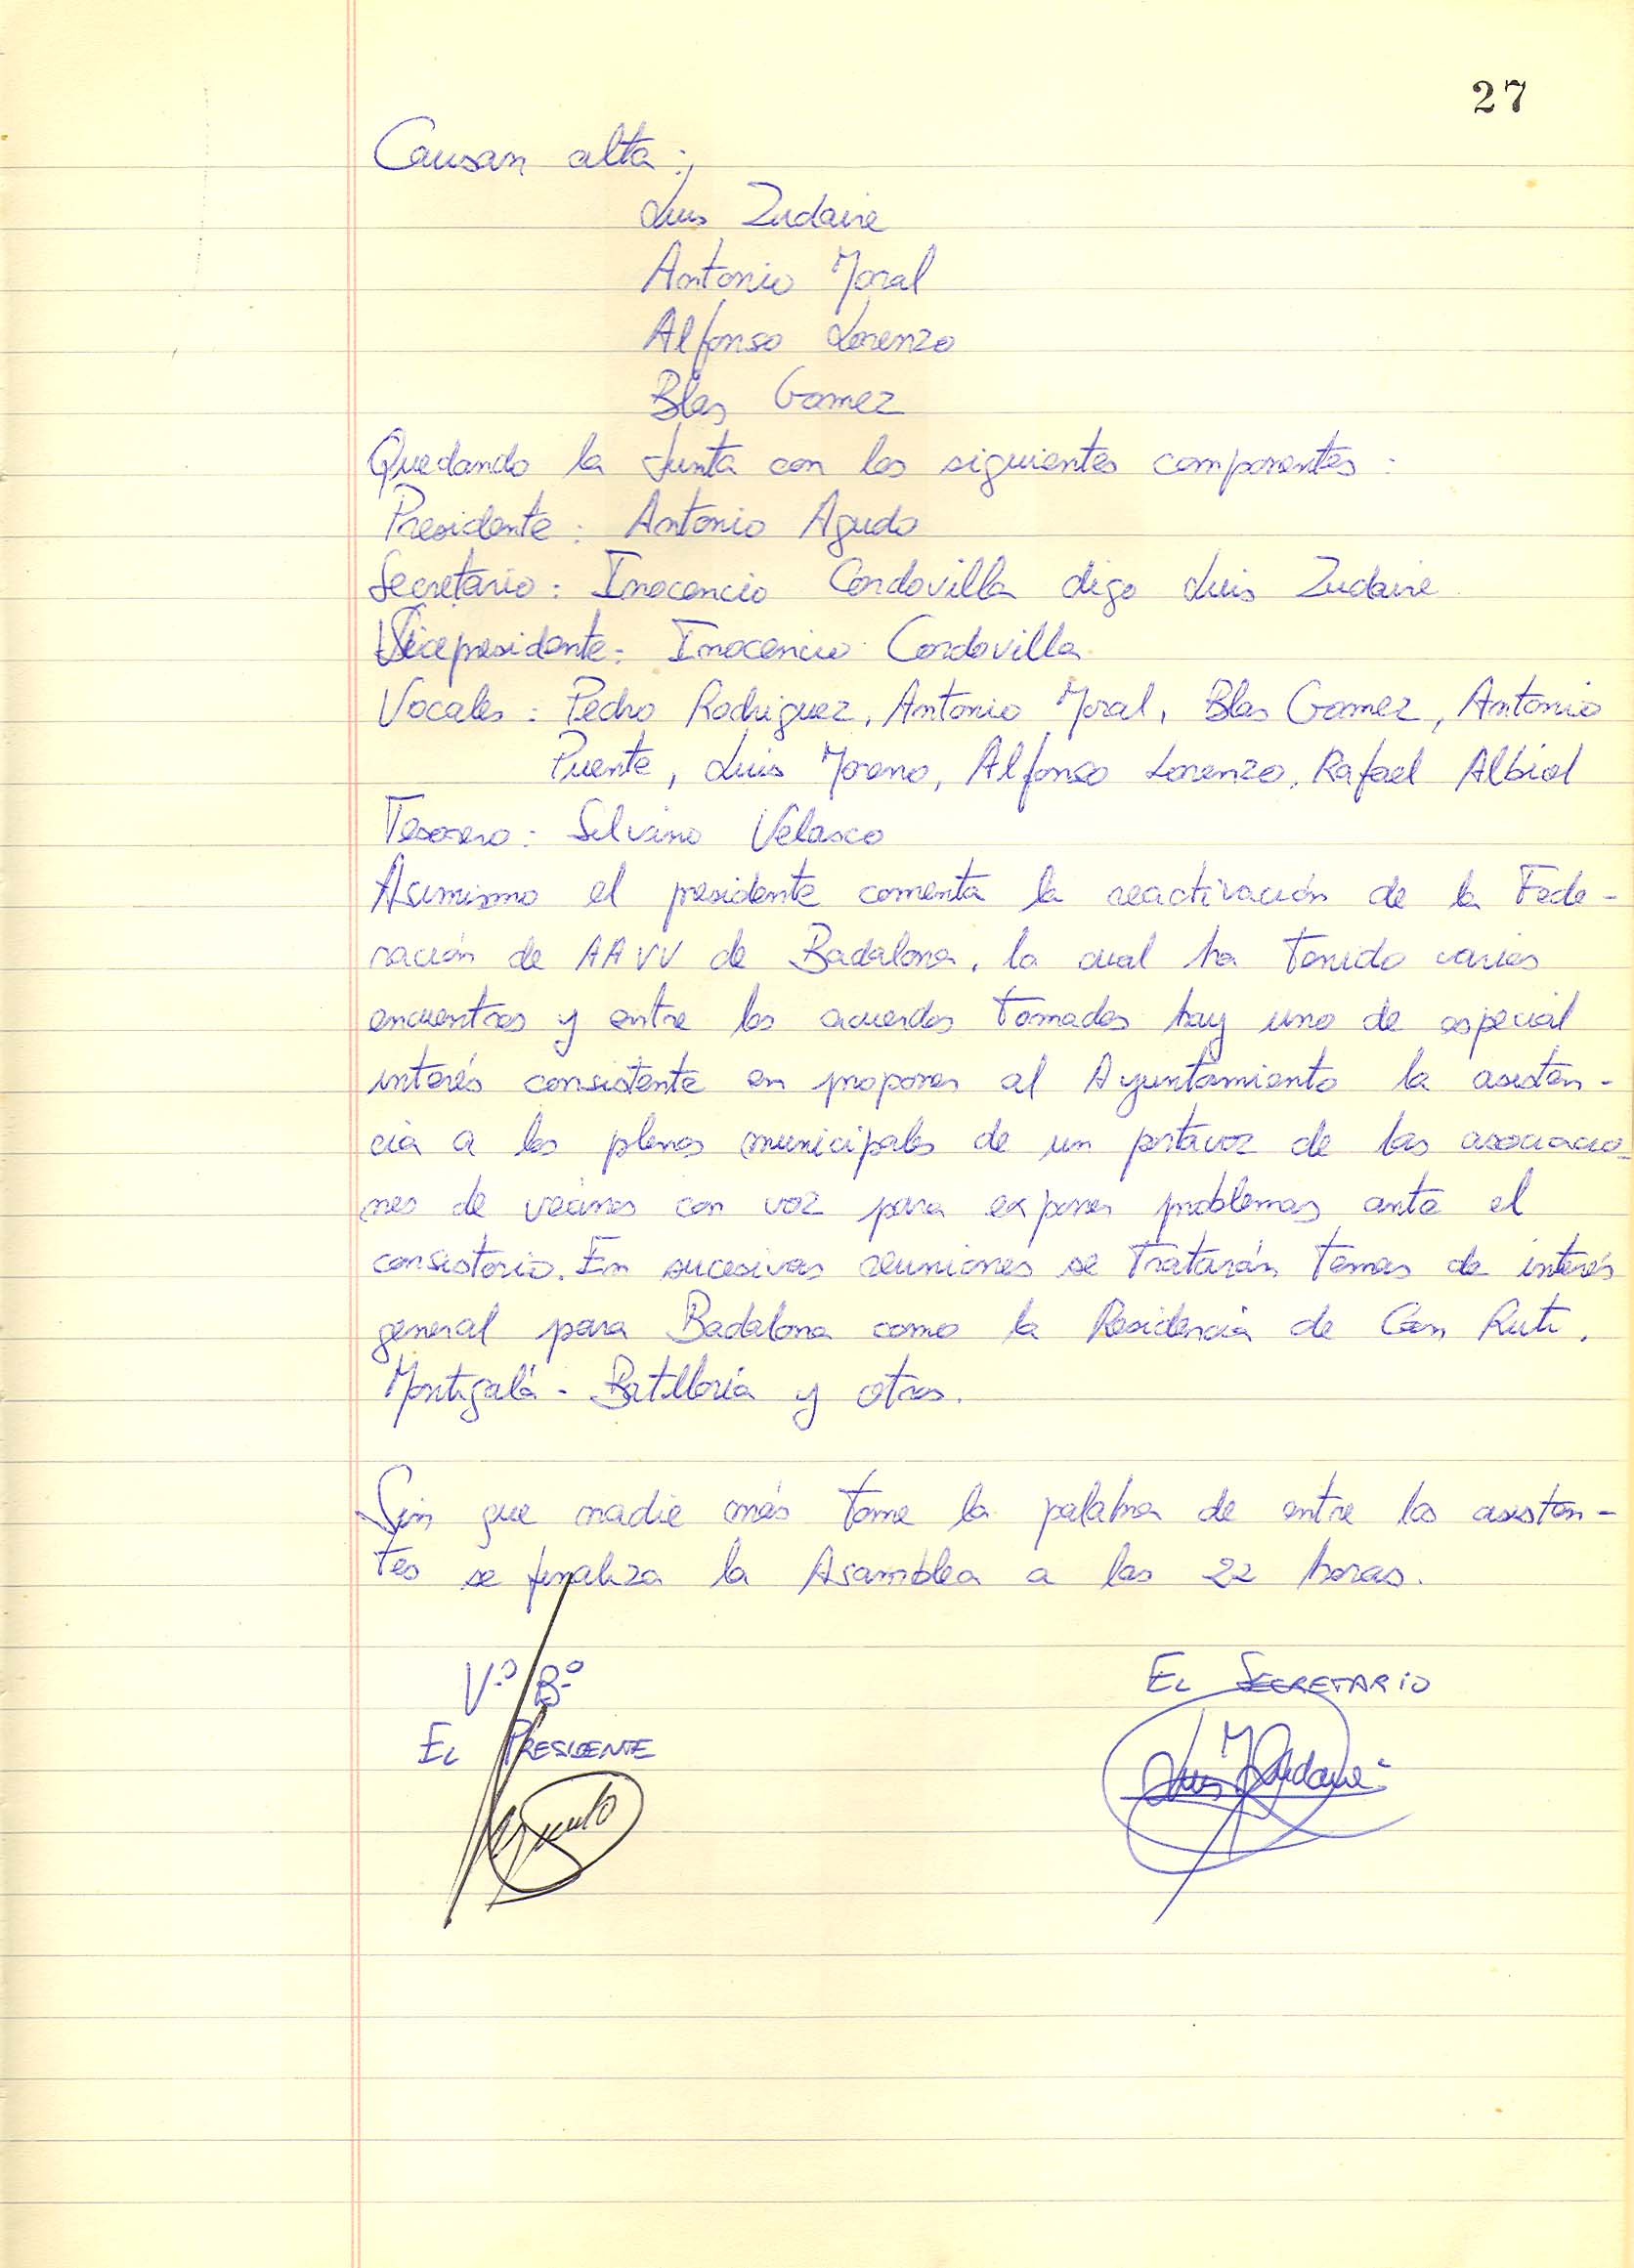 27
Causan alta:
Luis Zudaire
Antonio Moral
Alfonso Lorenzo
Blas Gomez
Quedando la Junta con los siguientes componentes:
Presidente: Antonio Agudo
Secretario: Inocencio Cordovilla digo Luis Zudaire
Vicepresidente: Inocencio Cordovilla
Vocales: Pedro Rodriguez, Antonio Moral, Blas Gomez, Antonio
Puente, Luis Moreno, Alfonso Lorenzo, Rafael Albiol
Tesorero: Silvino Velasco
Asimismo el presidente comenta la reactivación de la Fede-
ración de AAVV de Badalona, la cual ha tenido varios
encuentros y entre los acuerdos tomados hay uno de especial
interés consistente en proponer al Ayuntamiento la asisten-
cia a los plenos municipales de un portavoz de las asociacio-
nes de vecinos con voz para exponer problemas ante el
consistorio. En sucesivas reuniones se tratarán temas de interés
general para Badalona como la Residencia de Can Ruti,
Montigalá - Batlloria y otros.
Sin que nadie más tome la palabra de entre los asisten-
tes se finaliza la Asamblea a las 22 horas.
V.º B.º
El Presidente
El Secretario
Agudo
Luis M Zudaire